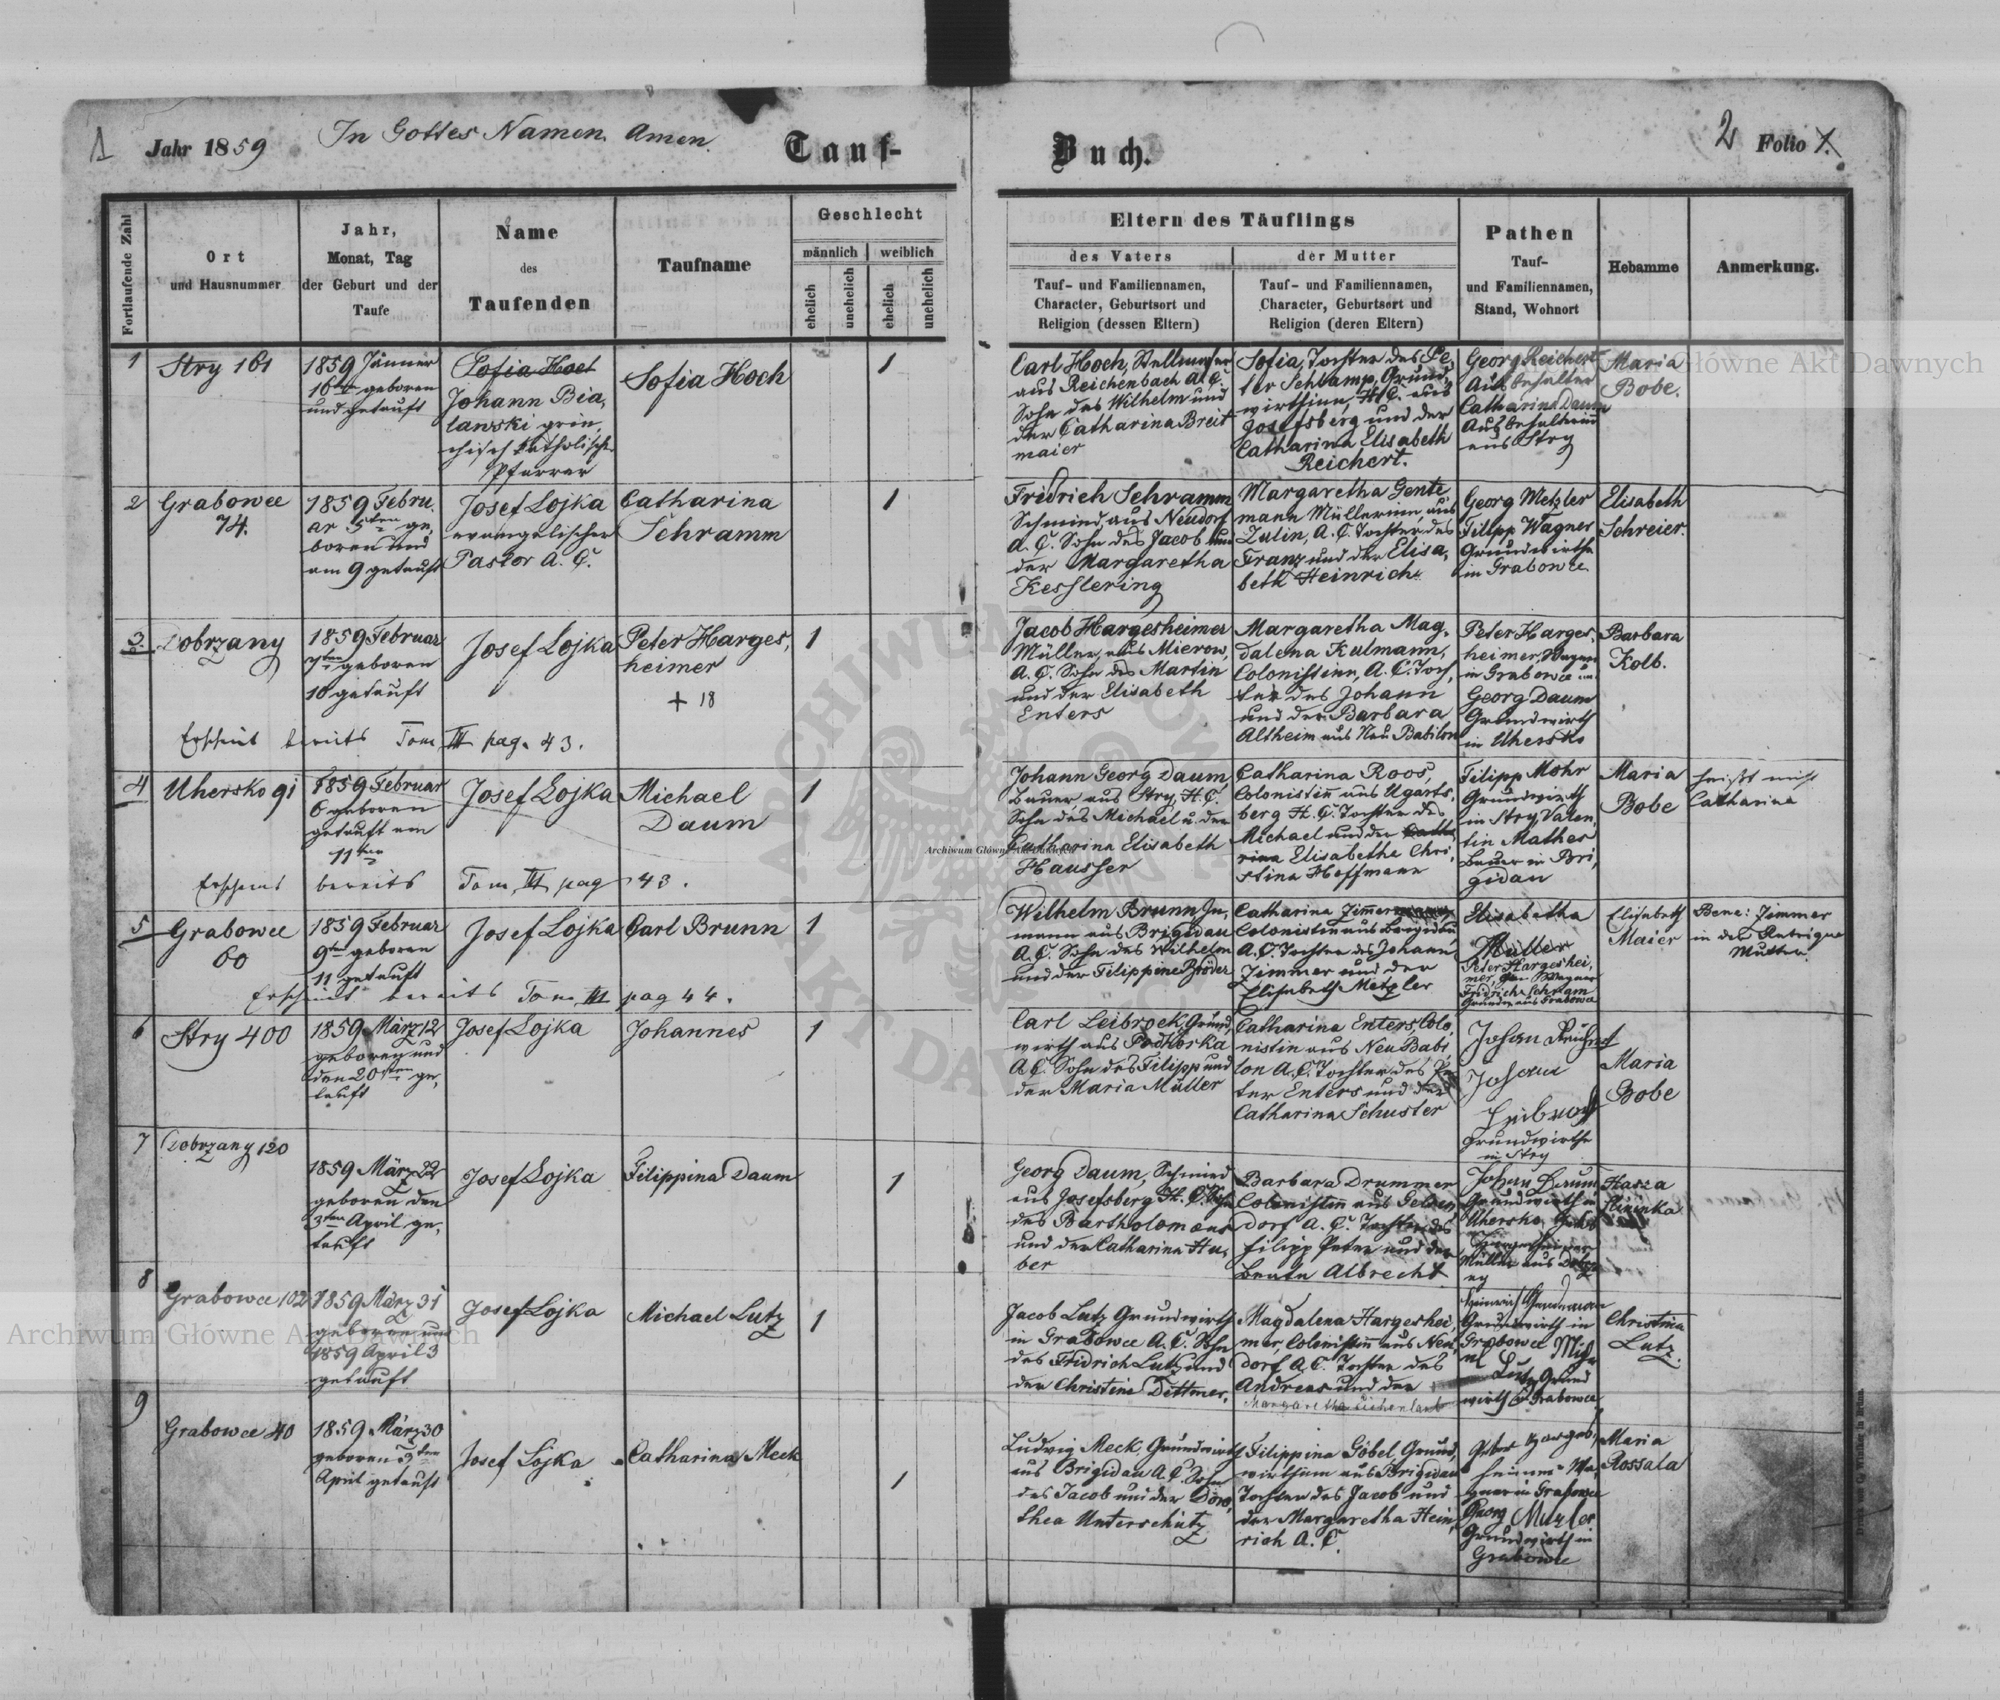 1 Jahr 1859 In Gottes Namen. Amen. Tauf-
Buch. 2 Folio 1.
Fortlaufende Zahl
Ort
und Hausnummer
Jahr,
Monat, Tag
der Geburt und der
Taufe
Name
des
Taufenden
Taufname
Geschlecht
männlich weiblich
ehelich unehelich ehelich unehelich
Eltern des Täuflings
des Vaters
Tauf- und Familiennamen,
Character, Geburtsort und
Religion (dessen Eltern)
der Mutter
Tauf- und Familiennamen,
Character, Geburtsort und
Religion (deren Eltern)
Pathen
Tauf-
und Familiennamen,
Stand, Wohnort
Hebamme
Anmerkung.
1
Stry 161
1859 Jänner
16ten geboren
und getauft
Sofia Hoch
Johann Bia,
lawski grie,
chisch katholische
Pfarrer
Sofia Hoch
1
Carl Hoch,
aus Reichenbach A. C.
Sohn des Wilhelm und
der Catharina Breit
maier
Sofia, Tochter des Pe,
ter Schlamp, Grund,
wirthinn, H. C. aus
Josefsberg und der
Catharina Elisabeth
Reichert.
Georg Reichert
Ausbehalter
Catharina Daum
Ausbehalterin
aus Stry
Maria
Bobe.
2
Grabowce
74.
1859 Febru.
ar 5ten ge,
boren und
am 9 getauft
Josef Lojka
evangelischer
Pastor A. C.
Catharina
Schramm
1
Fridrich Schramm
Schmied, aus Neudorf
A. C. Sohn des Jacob und
der Margaretha
Kesslering
Margaretha Gente
mann Müllerinn, aus
Zulin, A. C. Tochter des
Franz und der Elisa,
beth Heinrich
Georg Metzler
Filipp Wagner
Grundwirthe
in Grabowce.
Elisabeth
Schreier.
3.
Dobrzany
1859 Februar
7ten geboren
10 getauft
Josef Lojka
Peter Harges,
heimer
+ 18
1
Jacob Hargesheimer
Müller, aus Mierow,
A. C. Sohn des Martin
und der Elisabeth
Enters
Margaretha Mag,
dalena Kulmann,
Colonistinn, A. C. Toch,
ter des Johann
und der Barbara
Altheim aus Neu Babilon
Peter Harges,
heimer, Wagner
in Grabowce und
Georg Daum
Grundwirth
in Uhersko
Barbara
Kolb.
Erscheint bereits Tom III pag. 43.
4
Uhersko 91
1859 Februar
6 geboren
getauft am
11ten
Josef Lojka
Michael
Daum
1
Johann Georg Daum
Bauer aus Stry, H. C.
Sohn des Michael u. der
Catharina Elisabeth
Hausser
Catharina Roos,
Colonistin aus Ugarts,
berg H. C. Tochter des
Michael und der Catha
rina Elisabetha Chri,
stina Hoffmann
Filipp Mohr
Grundwirth
in Stry, Valen,
tin Mathes
Bauer in Bri,
gidau
Maria
Bobe
heißt nicht
Catharina
Erscheint bereits Tom III pag 43.
5
Grabowce
60
1859 Februar
9ten geboren
11 getauft
Josef Lojka
Carl Brunn
1
Wilhelm Brunn In,
mann aus Brigidau
A. C. Sohn des Wilhelm
und der Filippine Bröder
Catharina Zimmermann,
Colonistin aus Brigidau
A. C. Tochter des Johann
Zimmer und der
Elisabeth Metzler
Elisabetha
Müller
Peter Hargeshei,
mer, Wagner
Fridrich Schram
Elisabeth
Maier
Bene: Zimmer
in der Rubrique
Mutter.
Erscheint bereits Tom III pag 44.
6
Stry 400
1859 März 12
geboren und
den 20sten ge,
tauft
Josef Lojka
Johannes
1
Carl Leibrock, Grund,
wirth aus Podhorka
A. C. Sohn des Filipp und
der Maria Müller
Catharina Enters, Colo,
nistin aus Neu Babi,
lon A. C. Tochter des Pe
ter Enters und der
Catharina Schuster
Johan Reichert
Johan
Leibrock
Grundwirthe
in Stry
Maria
Bobe
7
Dobrzany 120
1859 März 22
geboren den
3ten April ge,
tauft
Josef Lojka
Filippina Daum
1
Georg Daum, Schmied
aus Josefsberg H. C. Sohn
des Bartholomäus
und der Catharina Hu,
ber
Barbara Drummer
Colonistin aus Gelsen,
dorf A. C. Tochter des
Filipp Peter und der
Beata Albrecht
Johan Daum
Grundwirth in
Uhersko
Müller aus Dobrza
ny
8
Grabowce 102
1859 März 31
geboren und
1859 April 3
getauft
Josef Lojka
Michael Lutz
1
Jacob Lutz Grundwirth
in Grabowce A. C. Sohn
des Fridrich Lutz und
der Christine Dittmer,
Magdalena Hargeshei,
mer, Colonistin aus Neu,
dorf A. C. Tochter des
Andreas und der
Grundwirth in
Grabowce Mich
Lutz Grund
wirth in Grabowce
Christina
Lutz.
9
Grabowce 40
1859 März 30
geboren 3ten
April getauft
Josef Lojka
Catharina Meck
1
Ludwig Meck, Grundwirth
aus Brigidau A. C. Sohn
des Jacob und der Doro,
thea Unterschütz
Filippina Göbel, Grund,
wirthin aus Brigidau
Tochter des Jacob und
der Margaretha Hein,
rich A. C.
Peter Harges,
heimer Wa,
gner in Grabowce
Georg Metzler
Grundwirth in
Grabowce
Maria
Rossala
Archiwum Główne Akt Dawnych
Archiwum Główne Akt Dawnych
Archiwum Główne Akt Dawnych